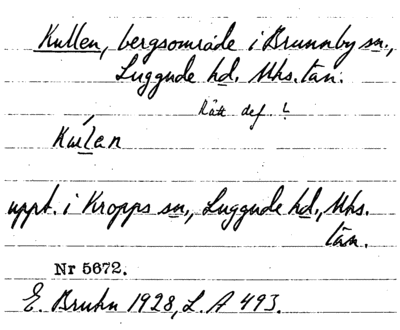 Kullen, bergsområde i Brunnby sn.,
Luggude hd. Mhs. län.
Rätt def. !
Kulan
uppt. i Kropps sn., Luggude hd., Mhs.
län.
Nr 5672.
E. Bruhn 1928, L. A 493.